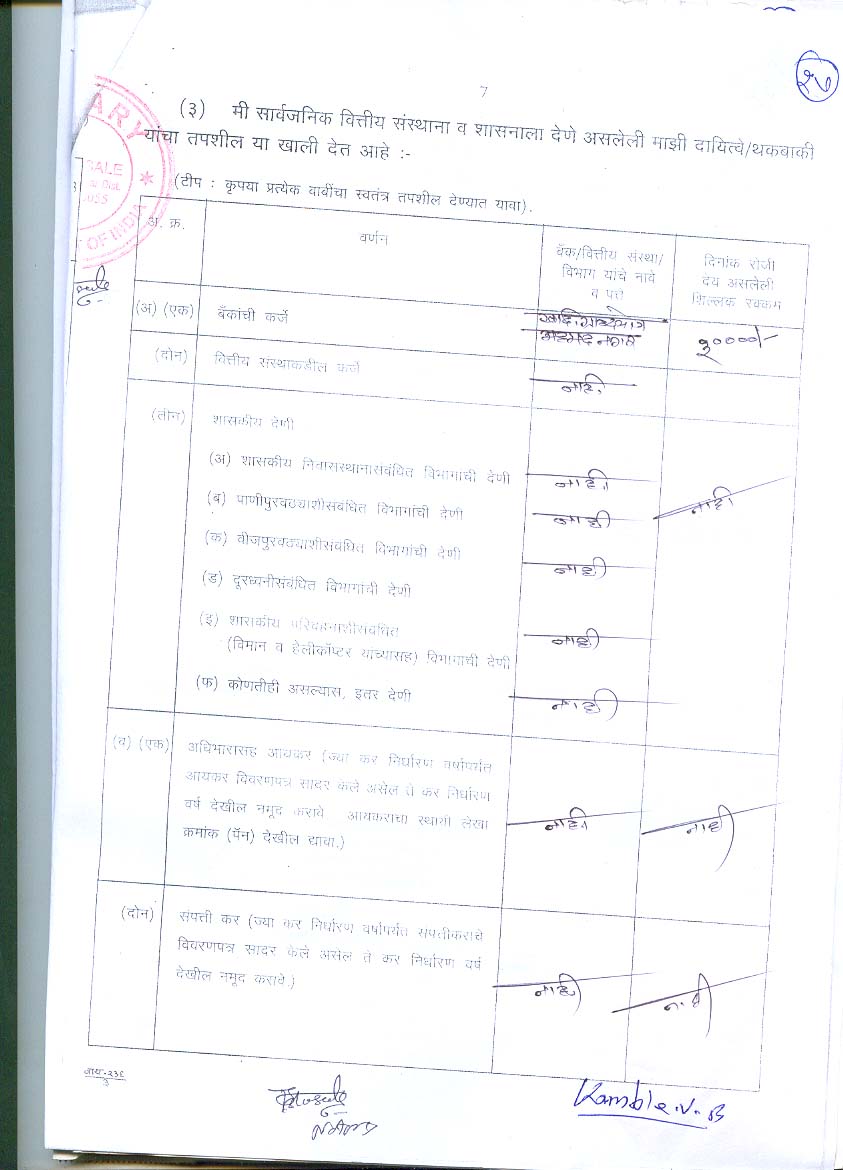 २७
7
(३) मी सार्वजनिक वित्तीय संस्थाना व शासनाला देणे असलेली माझी दायित्वे/थकबाकी
यांचा तपशील या खाली देत आहे :-
(टीप : कृपया प्रत्येक बाबींचा स्वतंत्र तपशील देण्यात यावा).
ARY
SALE
OF INDIA
अ. क्र.
वर्णन
बँक/वित्तीय संस्था/
विभाग यांचे नावे
व पत्ते
दिनांक रोजी
देय असलेली
शिल्लक रक्कम
(अ) (एक) बँकांची कर्जे
अहमदनगर
३००००/-
(दोन) वित्तीय संस्थाकडील कर्ज
नाही.
(तीन) शासकीय देणी
(अ) शासकीय निवासस्थानासंबंधित विभागाची देणी नाही.
(ब) पाणीपुरवठ्याशीसंबंधित विभागांची देणी नाही नाही
(क) वीजपुरवठ्याशीसंबंधित विभागांची देणी नाही
(ड) दूरध्वनीसंबंधित विभागांची देणी
(इ) शासकीय परिवहनाशीसंबंधित
(विमान व हेलीकॉप्टर यांच्यासह) विभागाची देणी नाही
(फ) कोणतीही असल्यास, इतर देणी नाही
(ब) (एक) अधिभारासह आयकर (ज्या कर निर्धारण वर्षापर्यंत
आयकर विवरणपत्र सादर केले असेल ते कर निर्धारण
वर्ष देखील नमूद करावे आयकराचा स्थायी लेखा
क्रमांक (पॅन) देखील द्यावा.)
नाही. नाही
(दोन) संपत्ती कर (ज्या कर निर्धारण वर्षापर्यंत संपत्तीकराचे
विवरणपत्र सादर केले असेल ते कर निर्धारण वर्ष
देखील नमूद करावे.)
नाही. नाही
नाय-२३६
3
Kamble.V.B